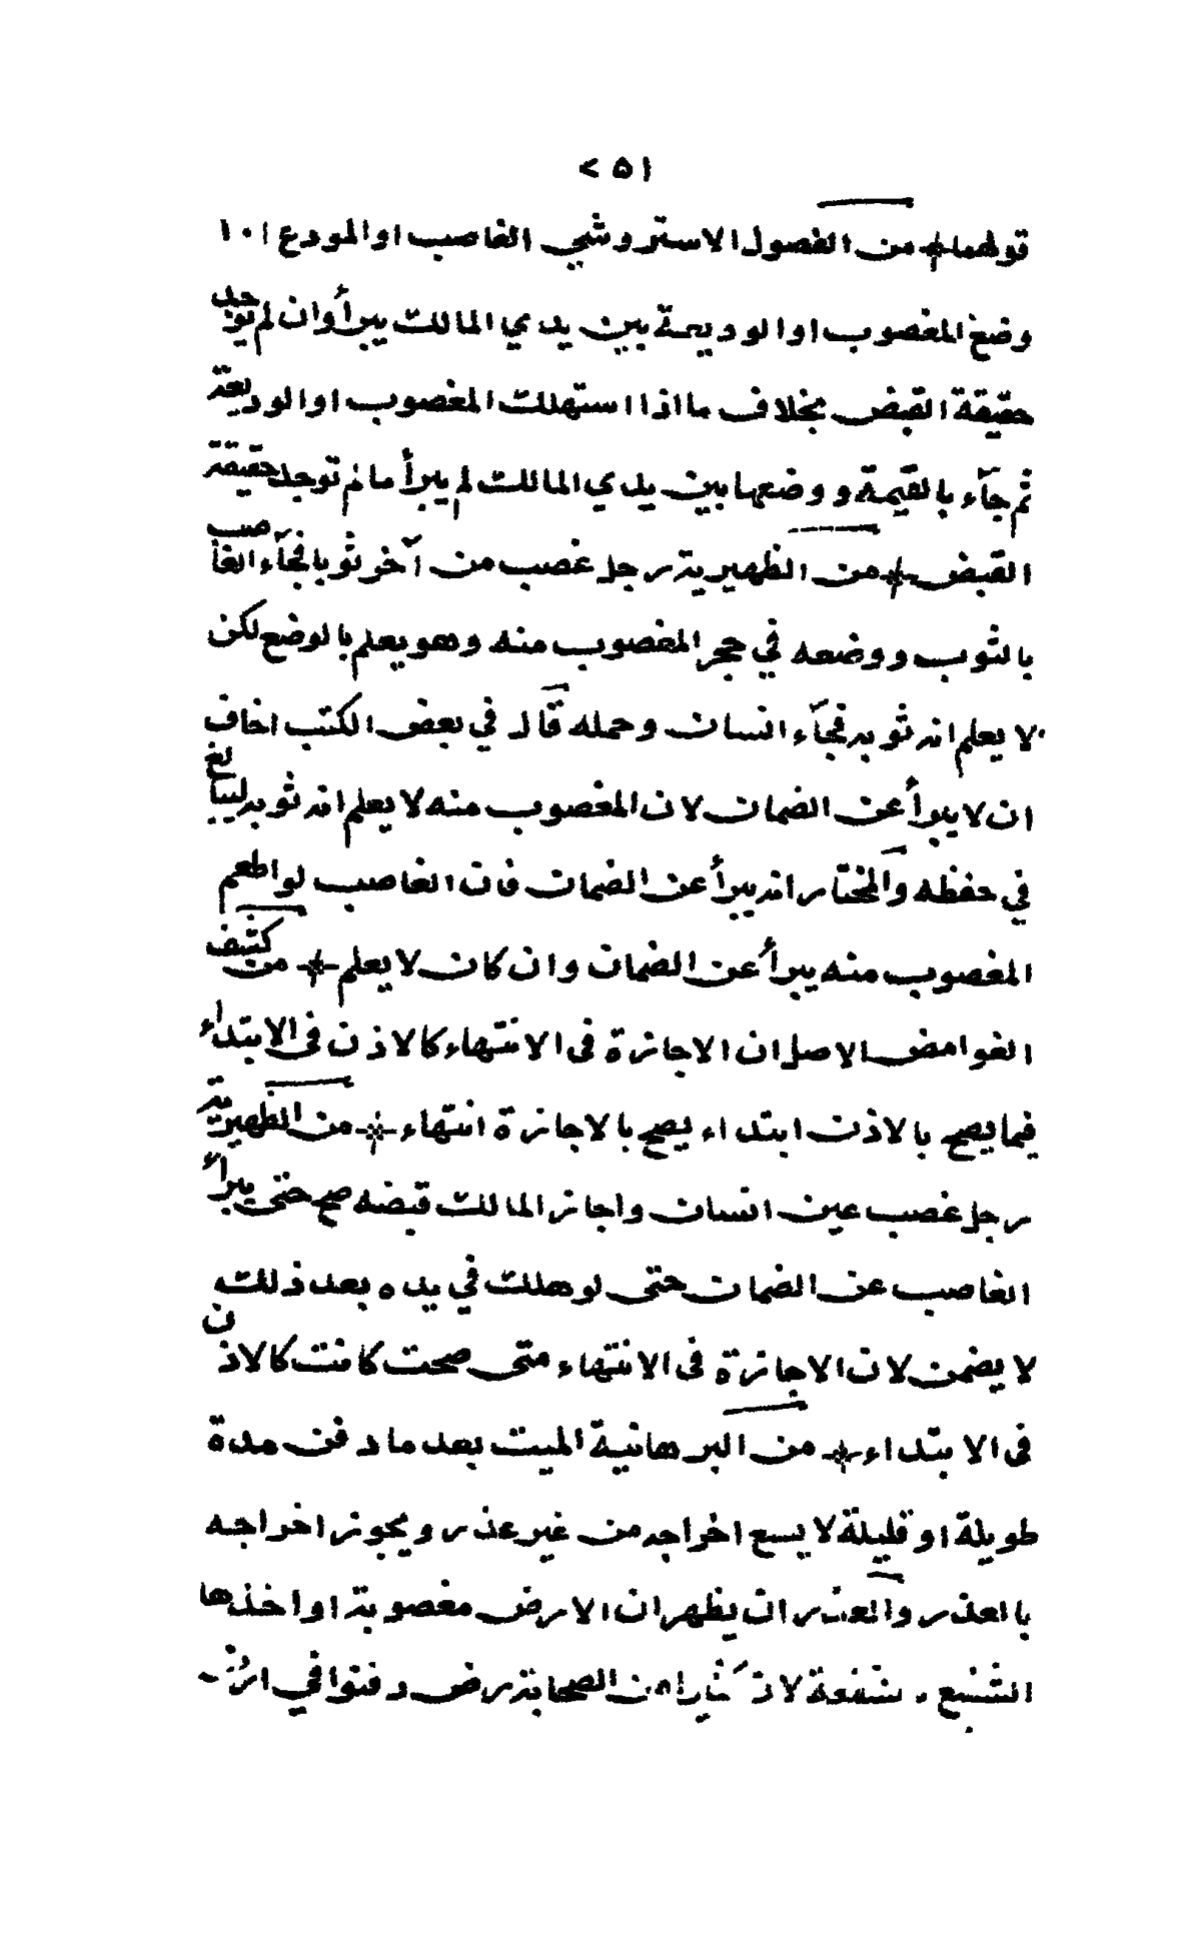 ٢٥١
قولهما ※ من الفصول الاستروشني الغاصب او المودع اذا
وضع المغصوب او الوديعة بين يدي المالك يبرأ وان لم توجد
حقيقة القبض بخلاف ما اذا استهلك المغصوب او الوديعة
ثم جآء بالقيمة ووضعها بين يدي المالك لم يبرأ مالم توجد حقيقة
القبض ※ من الظهيرية رجل غصب من آخر ثوبا فجآء الغاصب
بالثوب ووضعه في حجر المغصوب منه وهو يعلم بالوضع لكن
لا يعلم انه ثوبه فجآء انسان وحمله قال في بعض الكتب اخاف
ان لا يبرأ عن الضمان لان المغصوب منه لا يعلم انه ثوبه ليبالغ
في حفظه والمختار انه يبرأ عن الضمان فان الغاصب لو اطعم
المغصوب منه يبرأ عن الضمان وان كان لا يعلم ※ من كشف
الغوامض الاصل ان الاجازة فى الانتهاء كالاذن فى الابتداء
فيما يصح بالاذن ابتداء يصح بالاجازة انتهاء ※ من الظهيرية
رجل غصب عين انسان واجاز المالك قبضه صح حتى يبرأ
الغاصب عن الضمان حتى لو هلك في يده بعد ذلك
لا يضمن لان الاجازة فى الانتهاء متى صحت كانت كالاذن
فى الابتداء ※ من البرهانية الميت بعد ما دفن مدة
طويلة او قليلة لا يسع اخراجه من غير عذر ويجوز اخراجه
بالعذر والعذر ان يظهر ان الارض مغصوبة او اخذها
الشفيع بشفعة لان كثيرا من الصحابة رض دفنوا في ارض